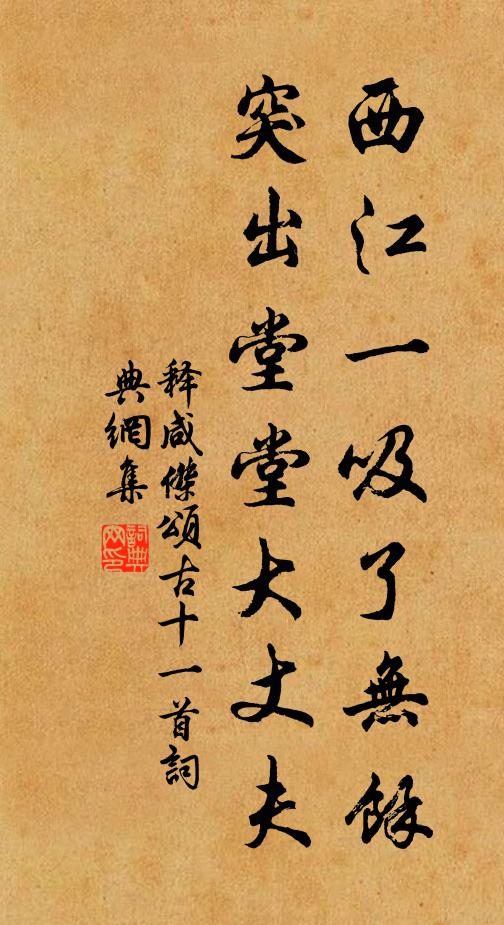 西江一吸了無餘
突出堂堂大丈夫
释咸傑頌古十一首詞
典網集
詞典
网印